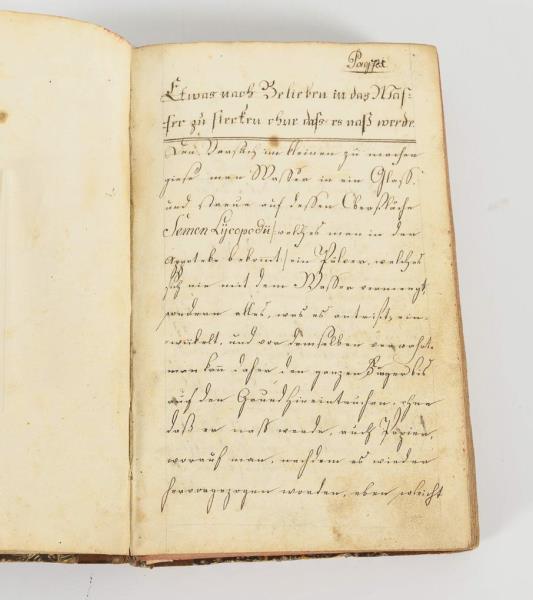 Pag 781
Etwas nach Belieben in das Was-
ser zu stecken ohne dass es naß werde.
Den Versuch im kleinen zu machen
giese man Wasser in ein Glass,
und streue auf dessen Oberfläche
Semen Lÿcopodii /:welches man in der
Appoteke bekomt:/ ein Pulver, welches
sich nie mit dem Wasser vermengt,
sondern alles, was es antrift, ein-
wickelt, und vor demselben verwahrt.
man kan daher den ganzen Finger bis
auf den Grund hineintauchen, ohne
daß er nass werde, auch Papier,
worauf man, nachdem es wieder
hervorgezogen worden, eben so leicht